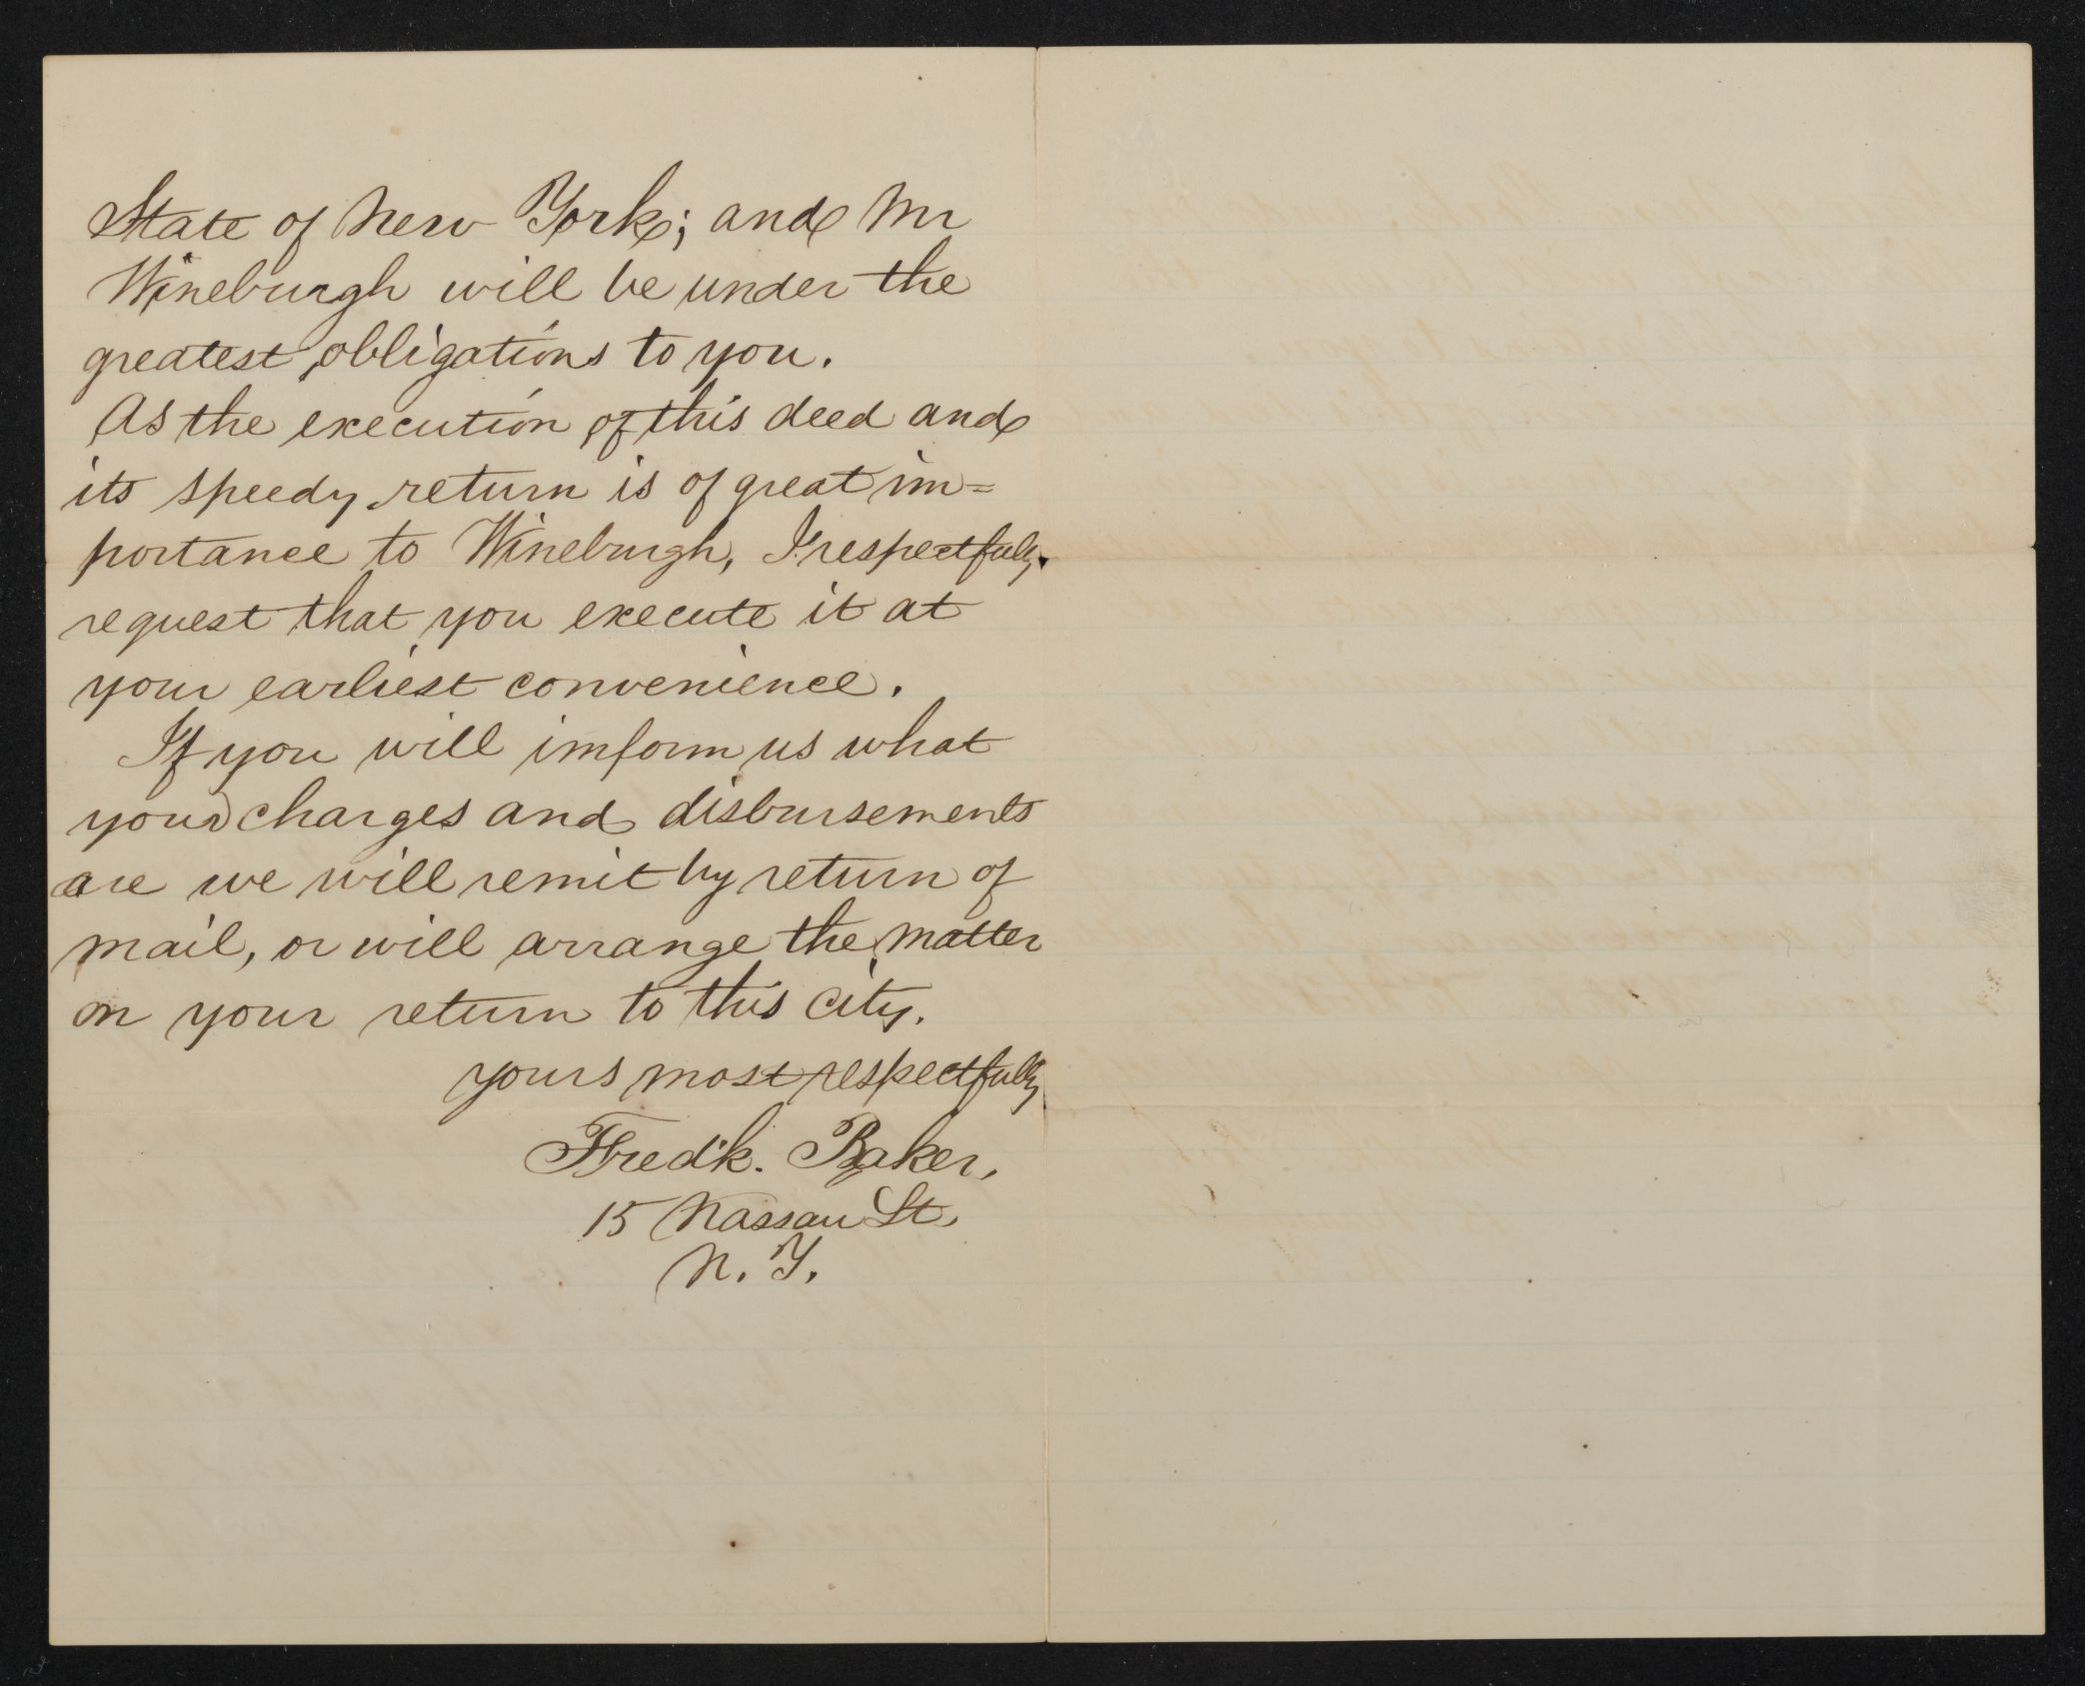 State of New York; and Mr
Wineburgh will be under the
greatest obligations to you.
As the execution of this deed and
its speedy return is of great im=
portance to Wineburgh, I respectfully
request that you execute it at
your earliest convenience.
If you will imform us what
your charges and disbursements
are we will remit by return of
mail, or will arrange the matter
on your return to this city.
yours most respectfully
Fredk. Baker,
15 Nassau St.
N. Y.